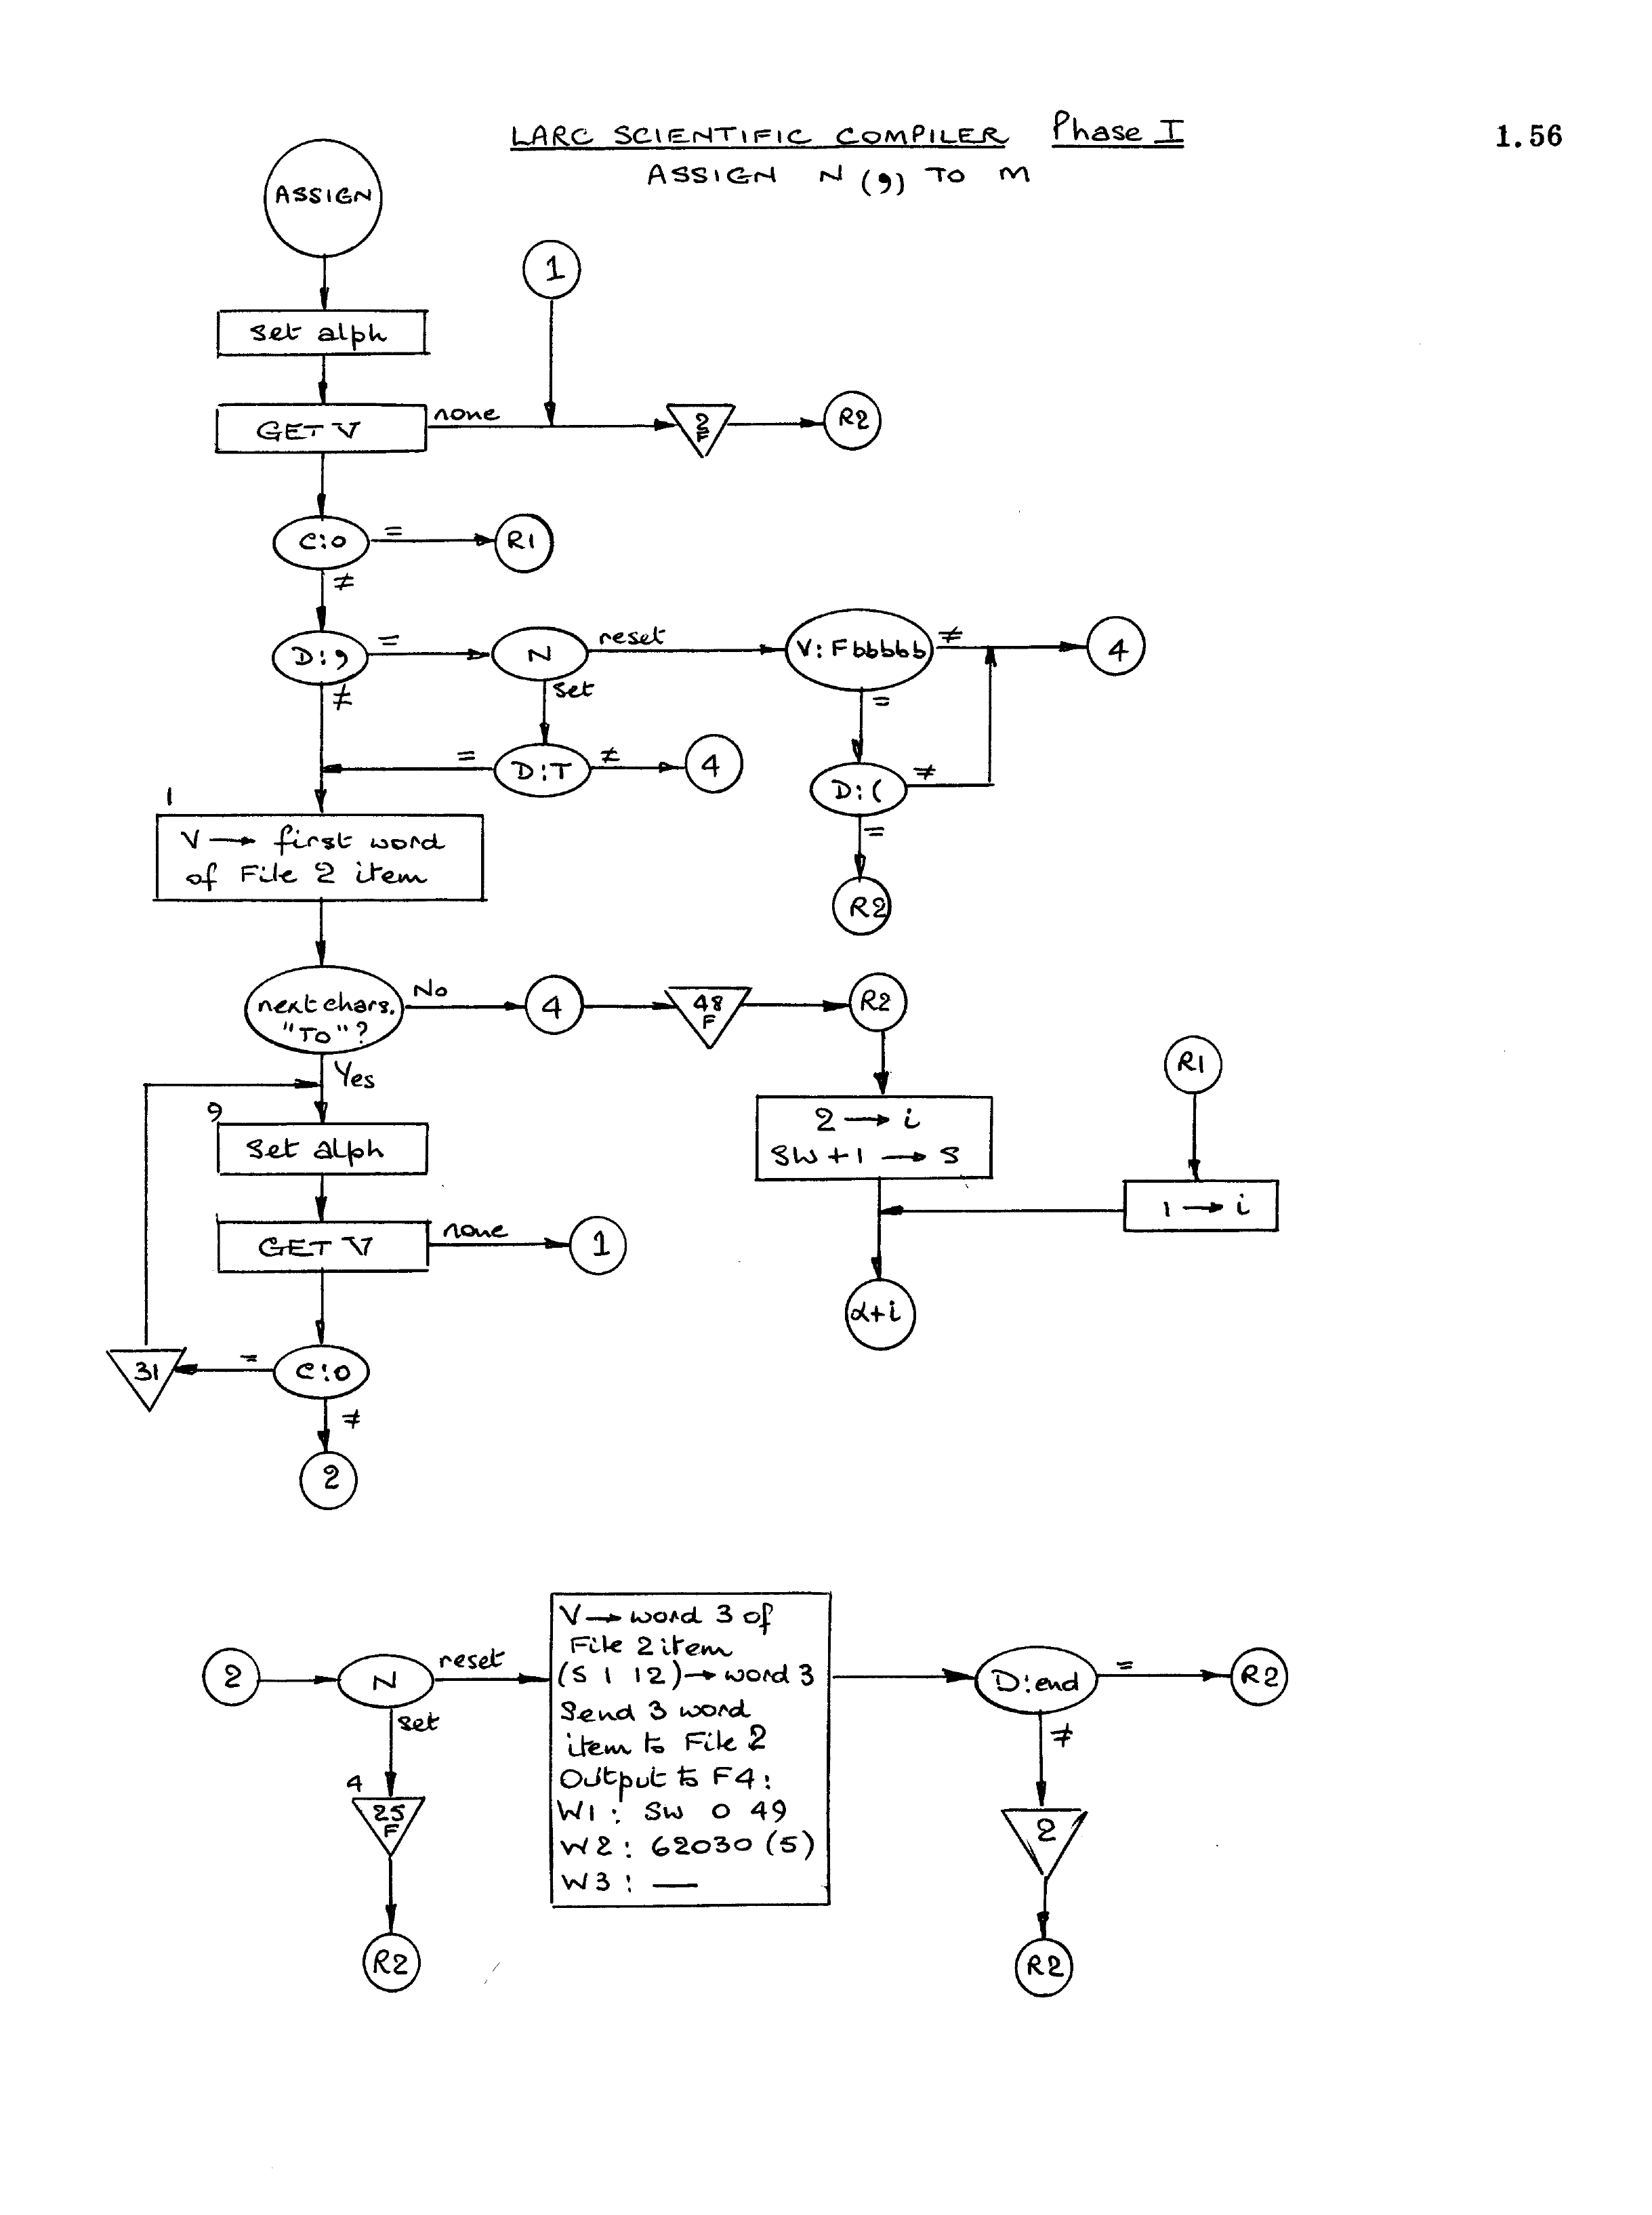 LARC SCIENTIFIC COMPILER Phase I
1.56
ASSIGN N (,) TO M
ASSIGN
1
Set alph
GET V
none
2
F
R2
C:0
=
R1
≠
D:,
=
N
reset
V:Fbbbbb
≠
4
≠
set
=
=
D:T
≠
4
D:(
≠
=
R2
1
V → first word
of File 2 item
next chars.
"TO"?
No
4
48
F
R2
Yes
2 → i
SW + 1 → S
R1
1 → i
9
Set alph
GET V
none
1
α+i
31
=
C:0
≠
2
2
N
reset
set
4
25
F
R2
V → word 3 of
File 2 item
(S 1 12) → word 3
Send 3 word
item to File 2
Output to F4:
W1: SW 0 49
W2: 62030 (5)
W3: —
D:end
=
R2
≠
2
R2